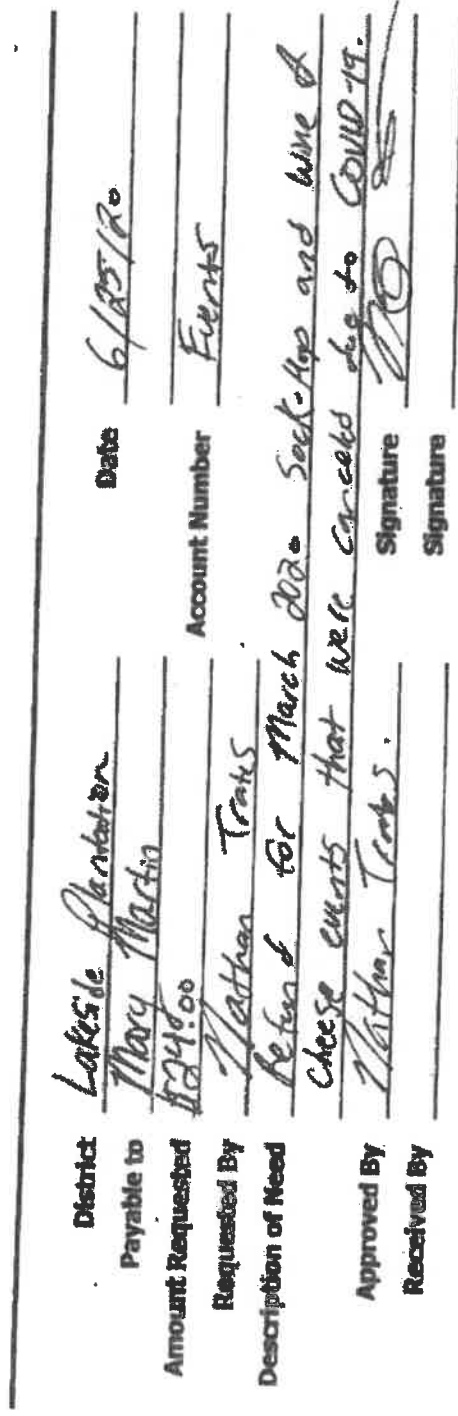 District Lakeside Plantation Date 6/25/20
Payable to Mary Martin
Amount Requested $24.00 Account Number Events
Requested By Nathan Trates
Description of Need Refund for March 2020 Sock-Hop and Wine &
Cheese events that were canceled due to COVID-19.
Approved By Nathan Trates. Signature
Received By Signature